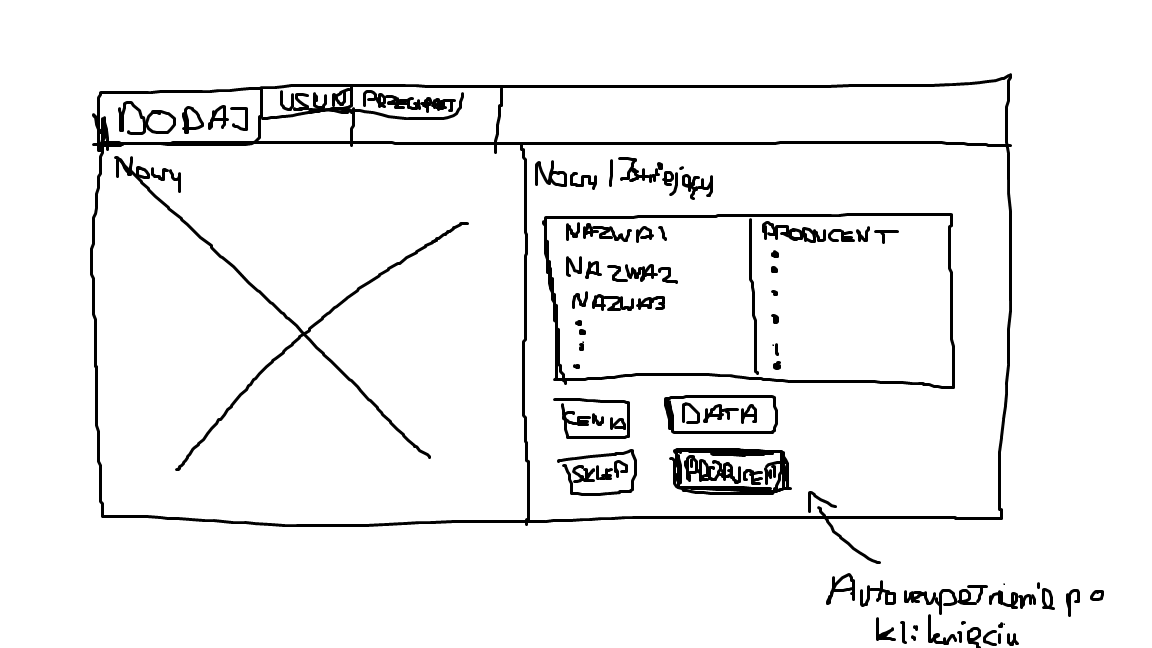 DODAJ
USUŃ
Nowy
Nowy | Istniejący
NAZWA1
PRODUCENT
NAZWA2
NAZWA3
CENA
DATA
SKLEP
PRODUCENT
Autouzupełnienie po
kliknięciu